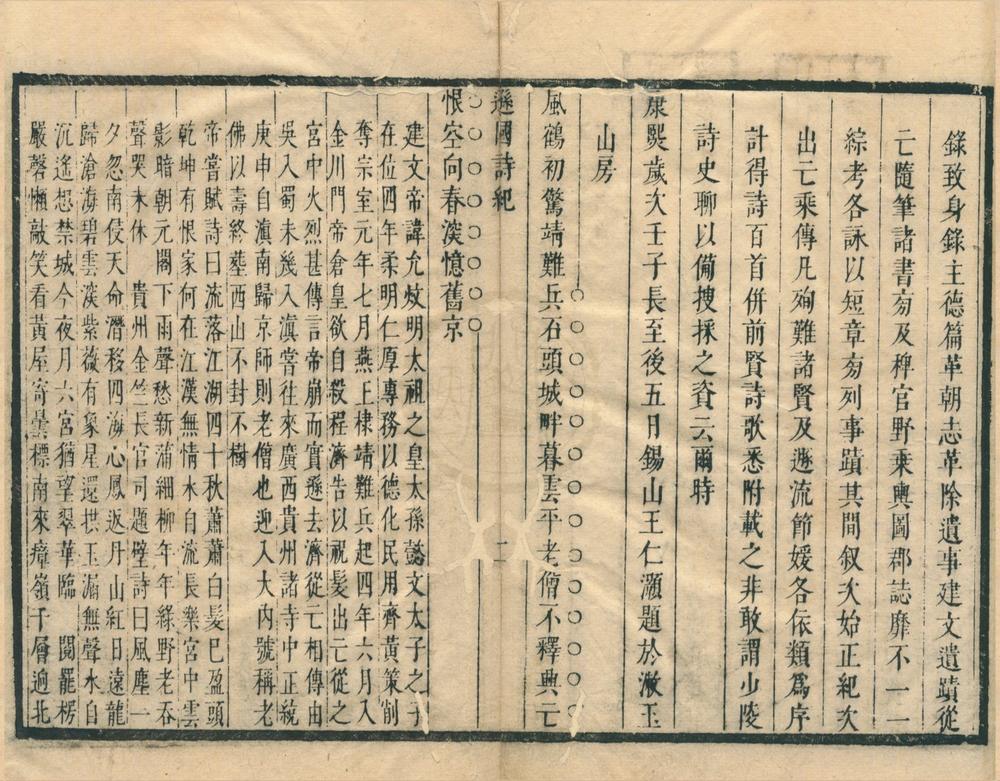 錄致身錄主德篇革朝志革除遺事建文遺蹟從
亡隨筆諸書旁及稗官野乘輿圖郡誌靡不一一
綜考各詠以短章旁列事蹟其間叙次始正紀次
出亡乘傳凡殉難諸賢及遜流節媛各依類爲序
計得詩百首併前賢詩歌悉附載之非敢謂少陵
詩史聊以備搜採之資云爾時
康熙歲次壬子長至後五月錫山王仁灝題於漱玉
山房
風鶴初驚靖難兵石頭城畔暮雲平老僧不釋興亡
遜國詩紀
恨空向春深憶舊京
建文帝諱允炆明太祖之皇太孫懿文太子之子
在位四年柔明仁厚專務以德化民用齊黃策削
奪宗室元年七月燕王棣靖難兵起四年六月入
金川門帝倉皇欲自殺程濟告以祝髮出亡從之
宮中火烈甚傳言帝崩而實遜去濟從亡相傳由
吳入蜀未幾入滇嘗往來廣西貴州諸寺中正統
庚申自滇南歸京師則老僧也迎入大內號稱老
佛以壽終塟西山不封不樹
帝嘗賦詩曰流落江湖四十秋蕭蕭白髮巳盈頭
乾坤有恨家何在江漢無情水自流長樂宮中雲
影暗朝元閣下雨聲愁新蒲細柳年年綠野老吞
聲哭未休 貴州金竺長官司題壁詩曰風塵一
夕忽南侵天命潛移四海心鳳返丹山紅日遠龍
歸滄海碧雲深紫薇有象星還拱玉漏無聲水自
沉遙想禁城今夜月六宮猶望翠華臨 閱罷楞
嚴磬懶敲笑看黃屋寄曇標南來瘴嶺千層逈北
二